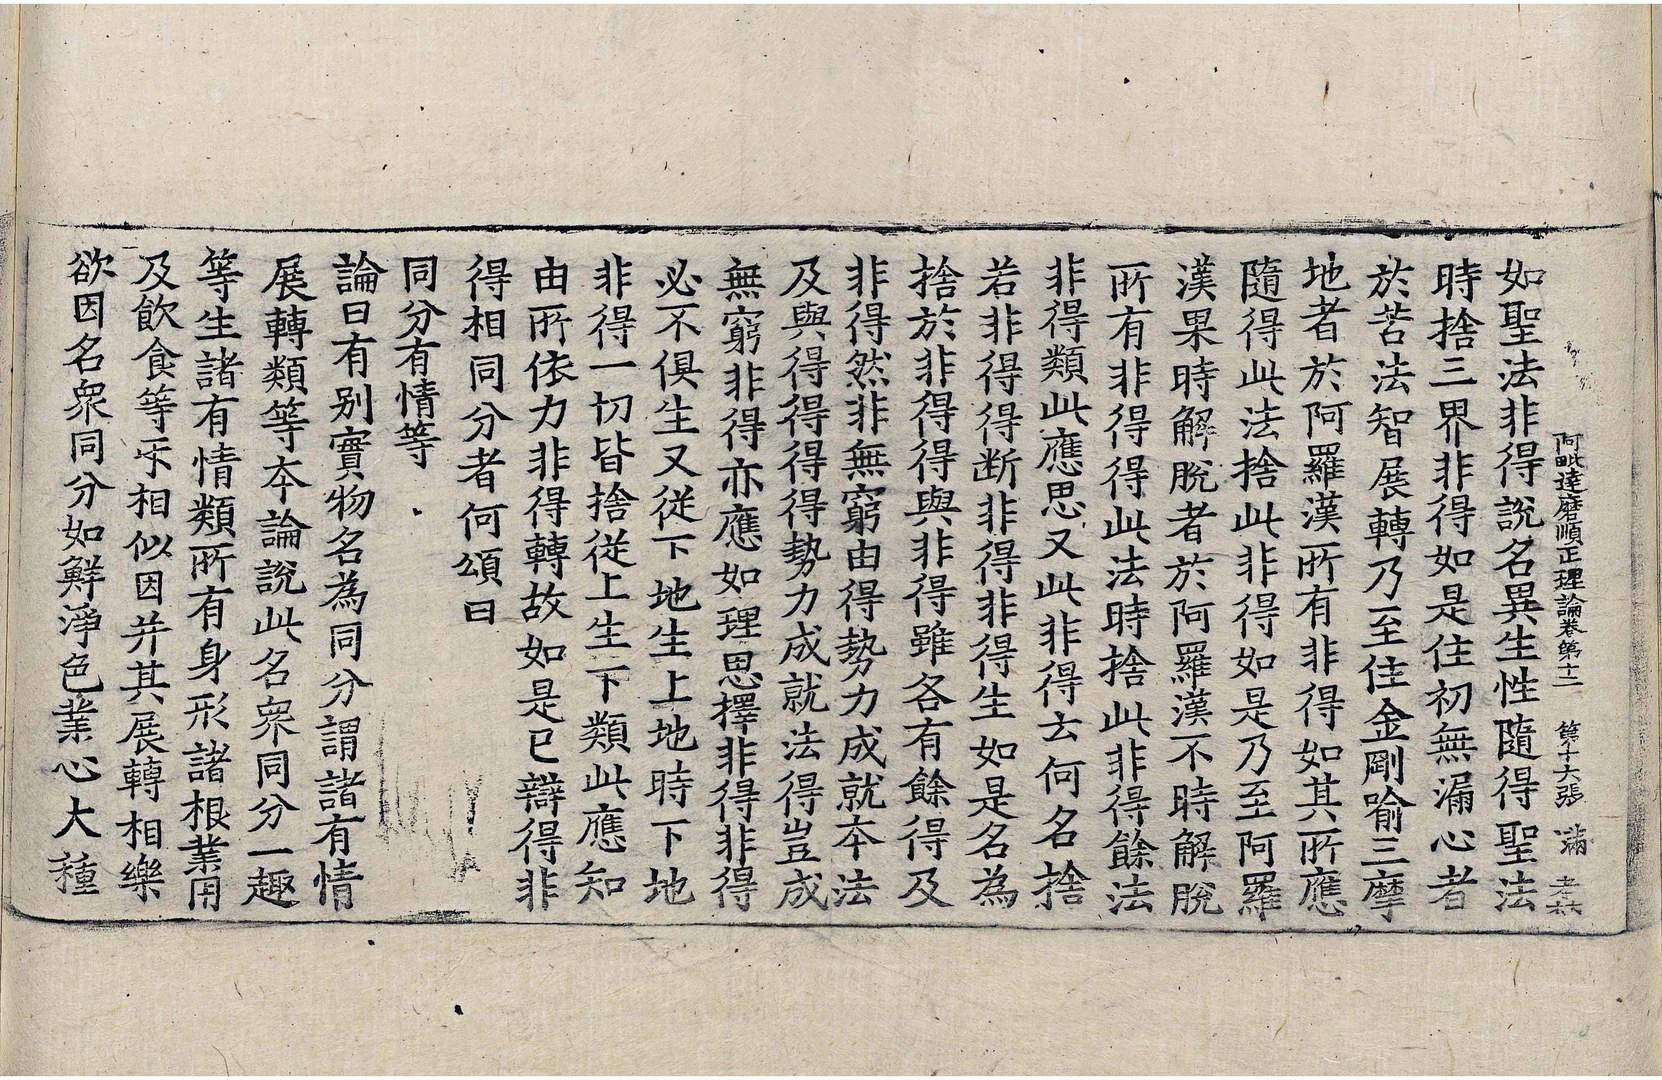 阿毗達磨順正理論卷第十二 第十六張 滿
如聖法非得說名異生性隨得聖法
時捨三界非得如是住初無漏心者
於苦法智展轉乃至住金剛喻三摩
地者於阿羅漢所有非得如其所應
隨得此法捨此非得如是乃至阿羅
漢果時解脫者於阿羅漢不時解脫
所有非得得此法時捨此非得餘法
非得類此應思又此非得去何名捨
若非得得断非得非得生如是名為
捨於非得得與非得雖各有餘得及
非得然非無窮由得勢力成就本法
及與得得得得勢力成就法得豈成
無窮非得亦應如理思擇非得非得
必不俱生又從下地生上地時下地
非得一切皆捨從上生下類此應知
由所依力非得轉故如是已辯得非
得相同分者何頌曰
同分有情等
論曰有別實物名為同分謂諸有情
展轉類等本論說此名衆同分一趣
等生諸有情類所有身形諸根業用
及飲食等互相似因并其展轉相樂
欲因名衆同分如鮮淨色業心大種